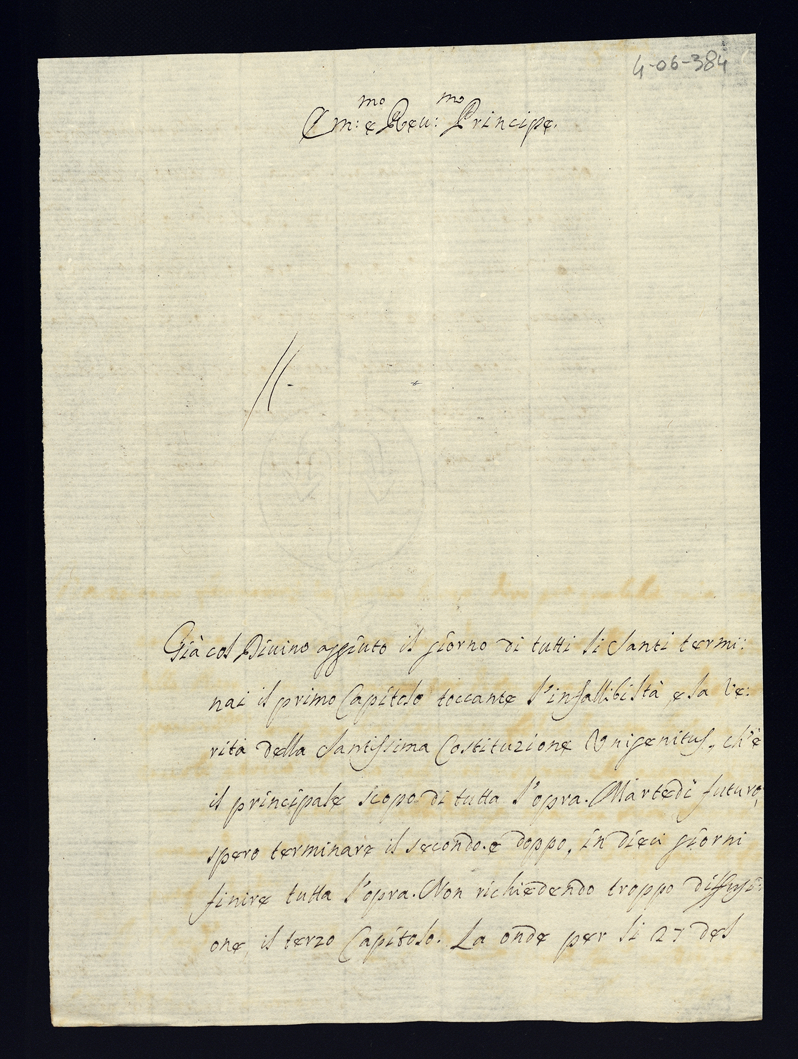 4-06-384
Em:mo e Reu:mo Principe.
Già col Divino aggiuto il giorno di tutti li Santi termi:
nai il primo Capitolo toccante l'infallibiltà e la Ve:
rità della Santissima Costituzione Unigenitus, ch'è
il principale scopo di tutta l'opra. Martedì futuro,
spero terminare il secondo. e doppo, in dieci giorni
finire tutta l'opra. Non richiedendo troppo diffusi:
one, il terzo Capitolo. La onde per li 27 del